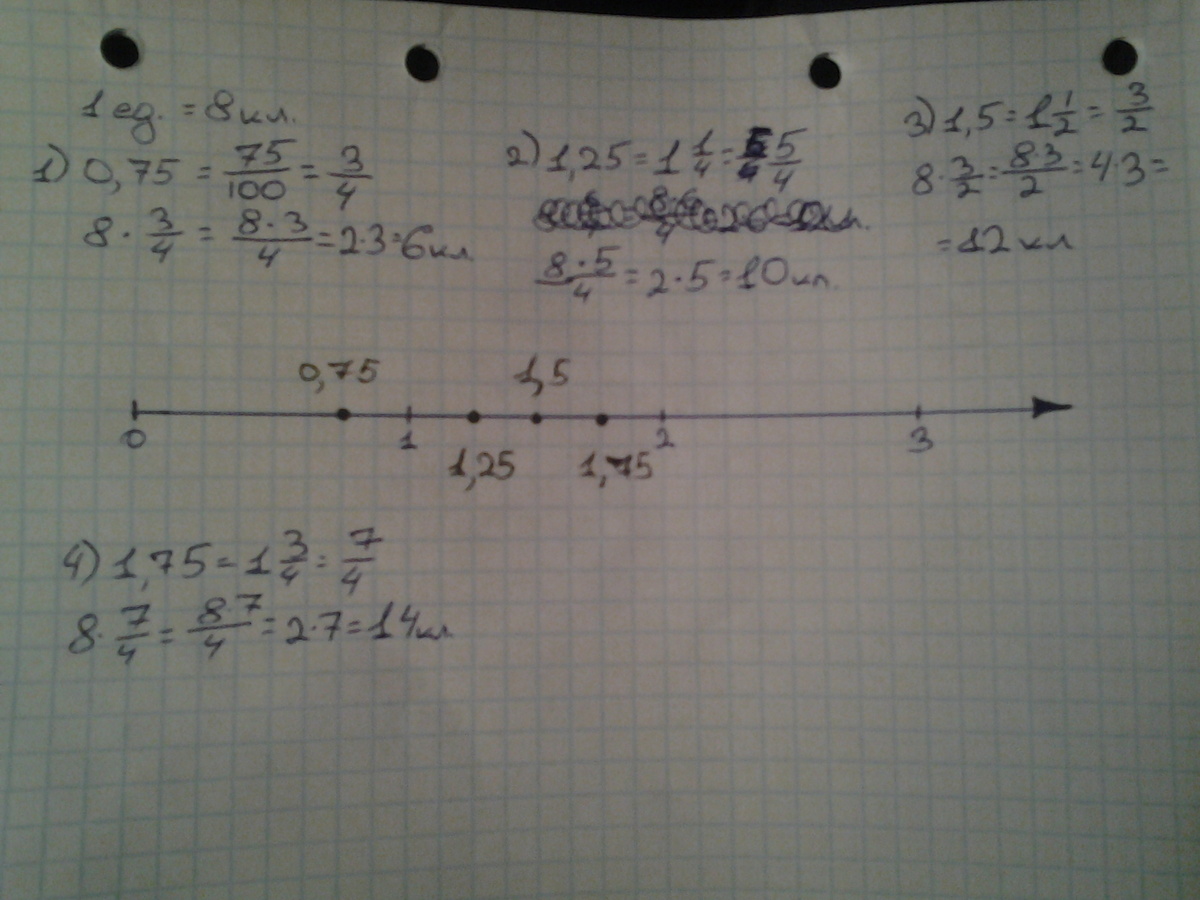 1 ед. = 8 кл.
1) 0,75 = 75/100 = 3/4
8 · 3/4 = 8·3/4 = 2·3 = 6 кл
2) 1,25 = 1 1/4 = 5/4
8·5/4 = 2·5 = 10 кл.
3) 1,5 = 1 1/2 = 3/2
8·3/2 = 8·3/2 = 4·3 =
= 12 кл
0,75 1,5
0 1 2 3
1,25 1,75
4) 1,75 = 1 3/4 = 7/4
8·7/4 = 8·7/4 = 2·7 = 14 кл